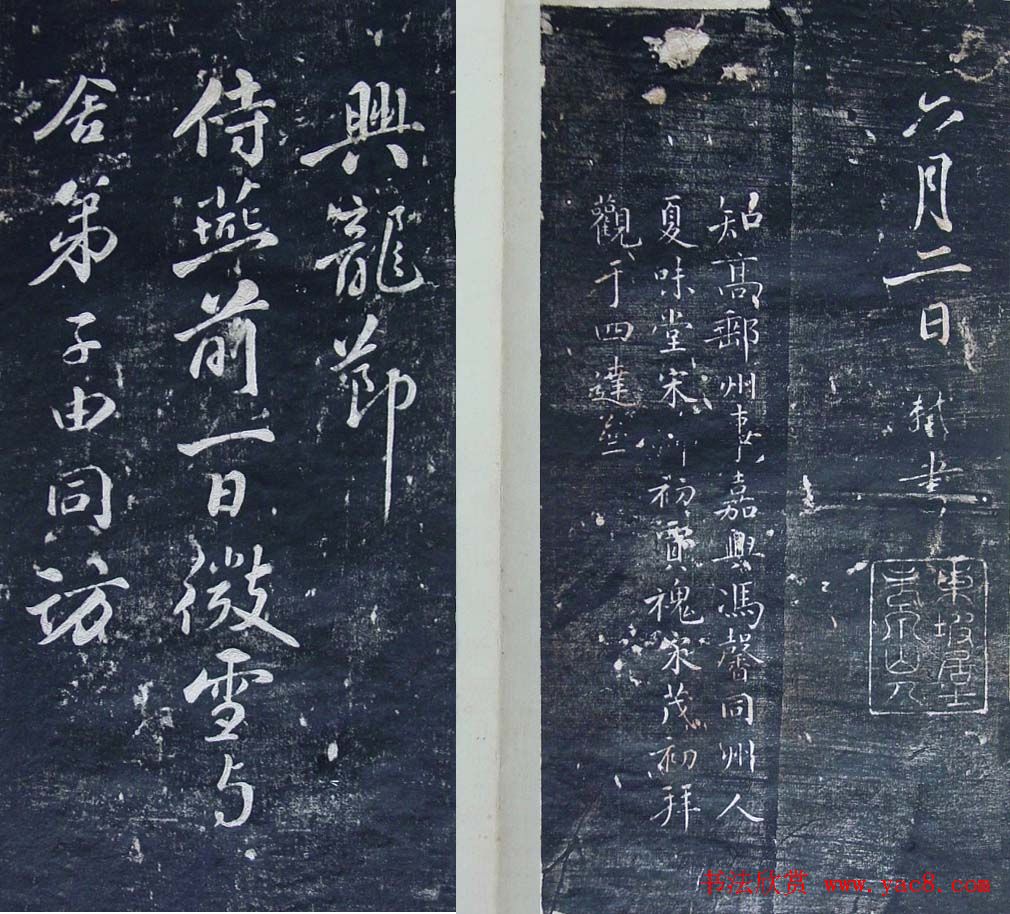 六月二日軾書
東坡居士
老泉山人
知高郵州事嘉興馮馨同州人
夏味堂宋初賈家茂初拜
觀于四達
興龍節
侍燕前一日微雪与
舍弟子由同訪
书法欣赏 www.yac8.com